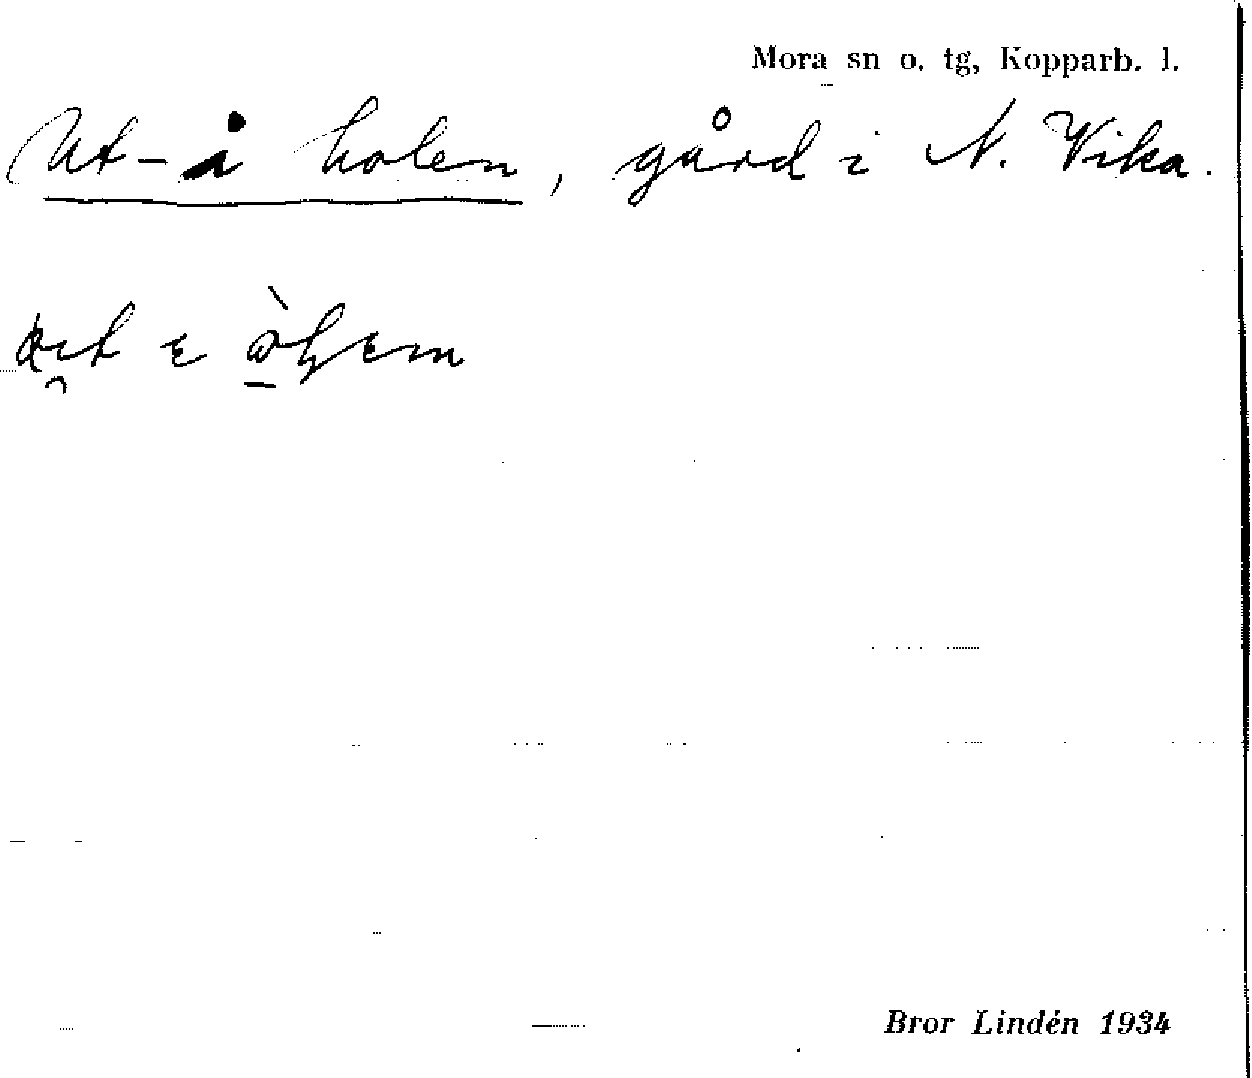 Mora sn o. tg, Kopparb. l.
Ut-å holen, gård i N. Vika.
Bror Lindén 1934